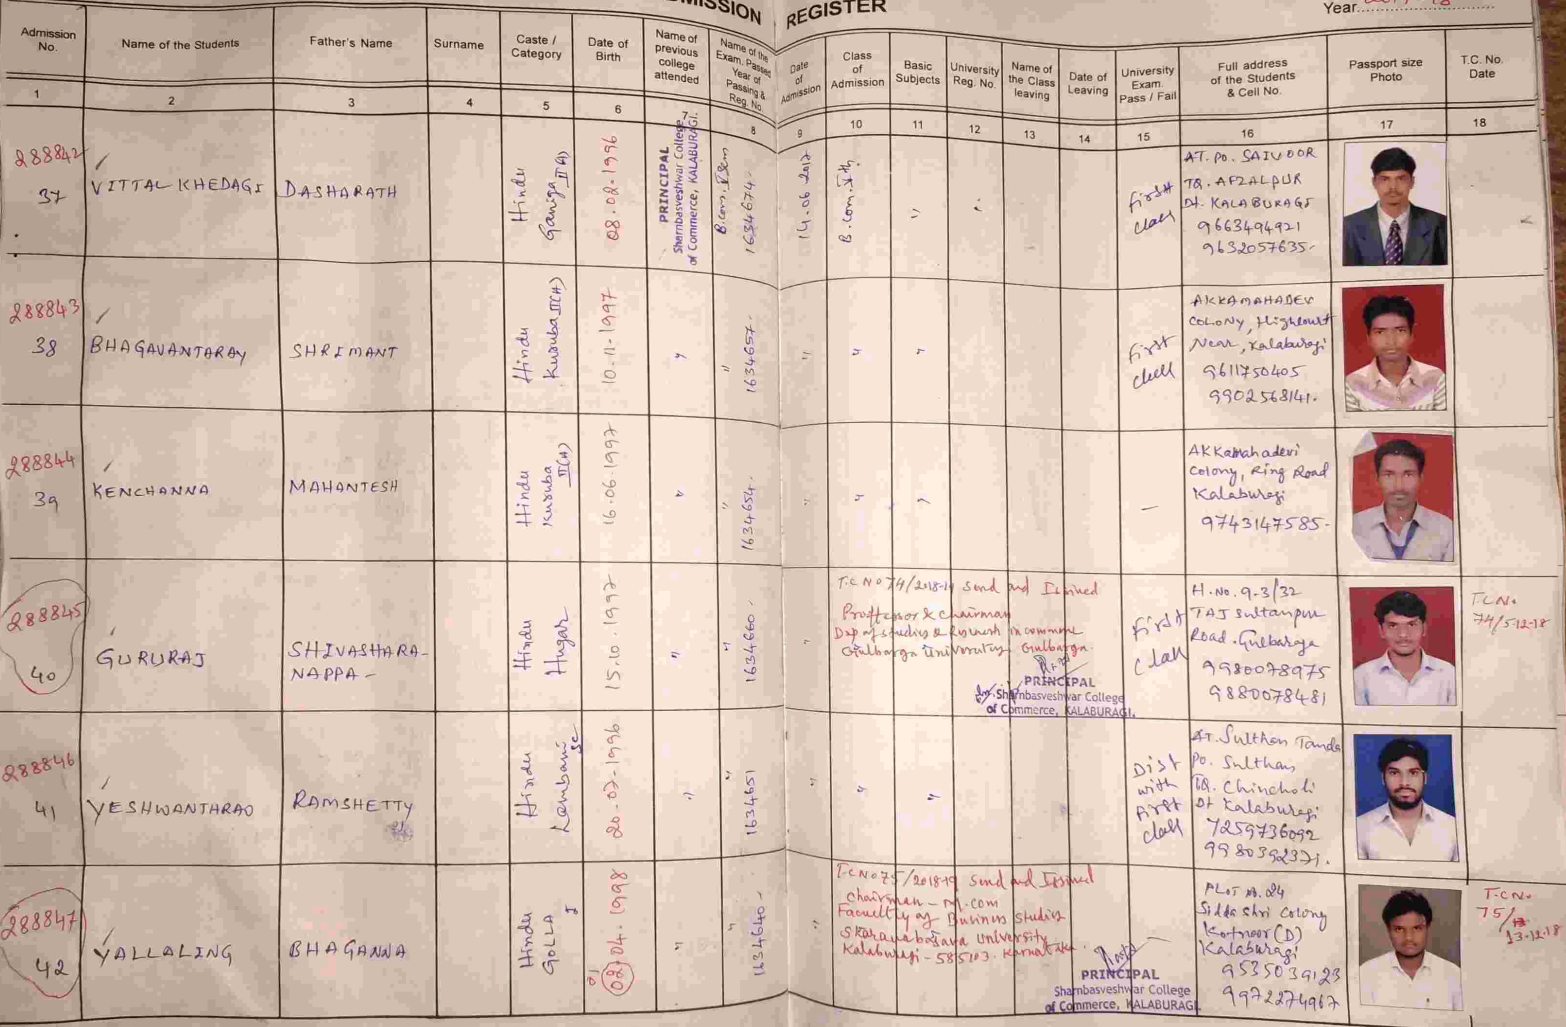 ADMISSION REGISTER
Year
Admission No.
Name of the Students
Father's Name
Surname
Caste / Category
Date of Birth
Name of previous college attended
Name of the Exam. Passed Year of Passing & Reg. No.
Date of Admission
Class of Admission
Basic Subjects
University Reg. No.
Name of the Class leaving
Date of Leaving
University Exam. Pass / Fail
Full address of the Students & Cell No.
Passport size Photo
T.C. No. Date
1 2 3 4 5 6 7 8 9 10 11 12 13 14 15 16 17 18
288842
37
VITTAL KHEDAGI
DASHARATH
Hindu
Ganiga II(A)
08.02.1996
PRINCIPAL
Sharnbasveshwar College
of Commerce, KALABURAGI.
B.com.
1634674
14.06.2017
B.com.
First
class
AT. PO. SAIVOOR
TQ. AFZALPUR
Dt. KALABURAGI
9663494921
9632057635
288843
38
BHAGAVANTARAY
SHRIMANT
Hindu
Kuruba II(A)
10.11.1997
"
"
1634657
"
"
"
First
AKKAMAHADEVI
COLONY, Highcourt
Near, Kalaburagi
9611750405
9902568141.
288844
39
KENCHANNA
MAHANTESH
Hindu
Kuruba
II(A)
16.06.1997
"
"
1634654
"
"
"
—
AKKamahadevi
Colony, Ring Road
Kalaburagi
9743147585-
288845
40
GURURAJ
SHIVASHARA-
NAPPA-
Hindu
Hugar
15.10.1997
"
"
1634660
"
T.C No 74/2018-19 Send and Issined
Proffessor & Chairman
Dep of studies & Research in commerce
Gulbarga University Gulbarga.
PRINCIPAL
Sharnbasveshwar College
of Commerce, KALABURAGI.
First
Class
H.No. 9-3/32
TAJ Sultanpur
Road. Gulbarga
9980078975
9880078481
T.C No.
74/5-12-18
288846
41
YESHWANTHRAO
RAMSHETTY
Hindu
Lambani
SC
20.07-1996
"
"
1634651
"
"
"
Dist
with
First
class
AT. Sulthan Tanda
Po. Sulthan
TQ. Chincholi
Dt Kalaburagi
7259736092
9980392371.
288847
42
YALLALING
BHAGANNA
Hindu
GOLLA
I
02.04.1998
"
"
1634640
"
T.C No 75/2018-19 Send and Issined
Chairman - M.com
Facuelty of Business Studies
Skaranabasava University
Kalaburagi - 585103. Karnataka.
PRINCIPAL
Sharnbasveshwar College
of Commerce, KALABURAGI.
PLOT No. 24
Siddashri Colony
Kotnoor (D)
Kalaburagi
9535039123
9972274967
T.C No.
75/
13-12-18